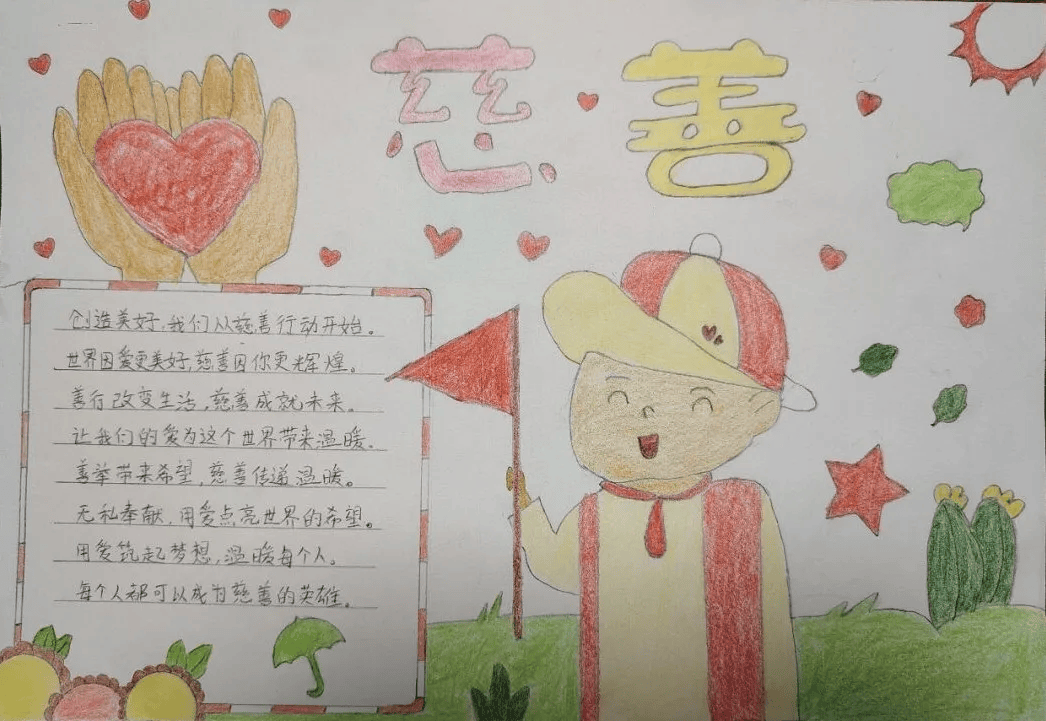 慈善
创造美好,我们从慈善行动开始。
世界因爱更美好,慈善因你更辉煌。
善行改变生活,慈善成就未来。
让我们的爱为这个世界带来温暖.
善举带来希望,慈善传递温暖。
无私奉献,用爱点亮世界的希望。
用爱筑起梦想,温暖每个人。
每个人都可以成为慈善的英雄。